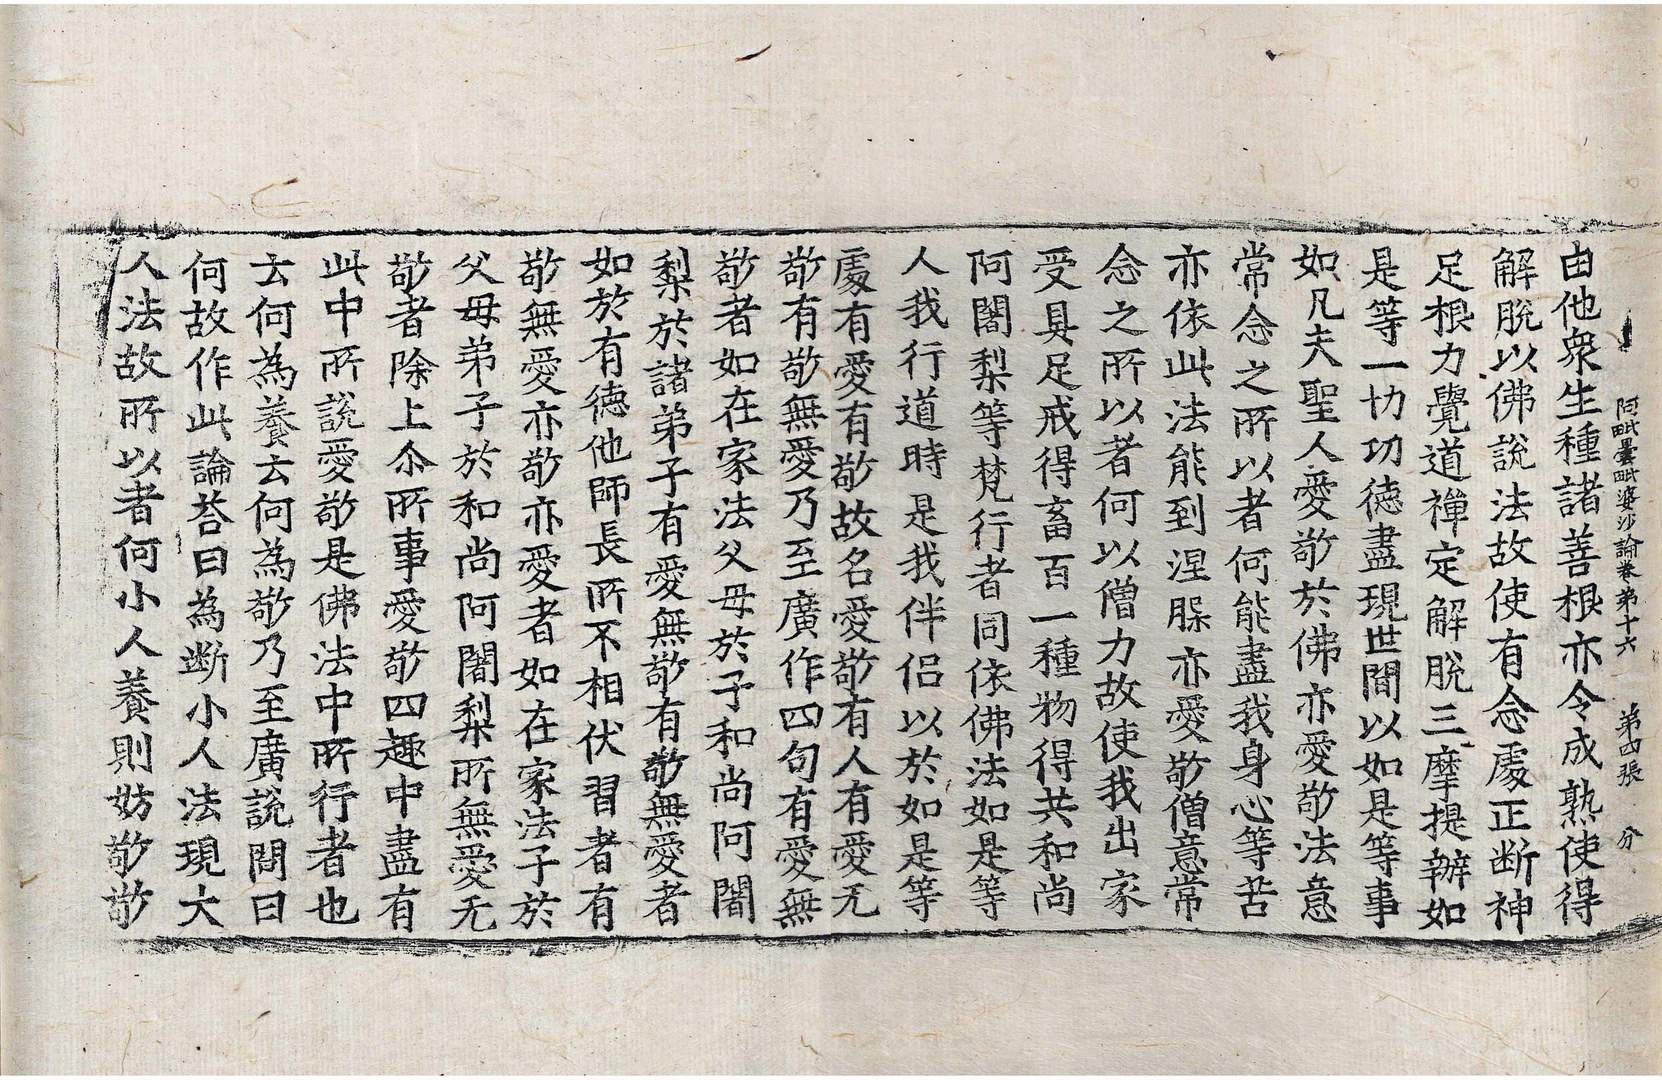 阿毗曇毗婆沙論卷第十六 第四張 分
由他衆生種諸善根亦令成熟使得
解脫以佛說法故使有念處正断神
足根力覺道禪定解脫三摩提辦如
是等一切功德盡現世間以如是等事
如凡夫聖人愛敬於佛亦愛敬法意
常念之所以者何能盡我身心等苦
亦依此法能到涅槃亦愛敬僧意常
念之所以者何以僧力故使我出家
受具足戒得畜百一種物得共和尚
阿闍梨等梵行者同依佛法如是等
人我行道時是我伴侣以於如是等
處有愛有敬故名愛敬有人有愛无
敬有敬無愛乃至廣作四句有愛無
敬者如在家法父母於子和尚阿闍
梨於諸弟子有愛無敬有敬無愛者
如於有德他師長所不相伏習者有
敬無愛亦敬亦愛者如在家法子於
父母弟子於和尚阿闍梨所無愛无
敬者除上尒所事愛敬四趣中盡有
此中所說愛敬是佛法中所行者也
云何為養云何為敬乃至廣說問曰
何故作此論荅曰為断小人法現大
人法故所以者何小人養則妨敬敬